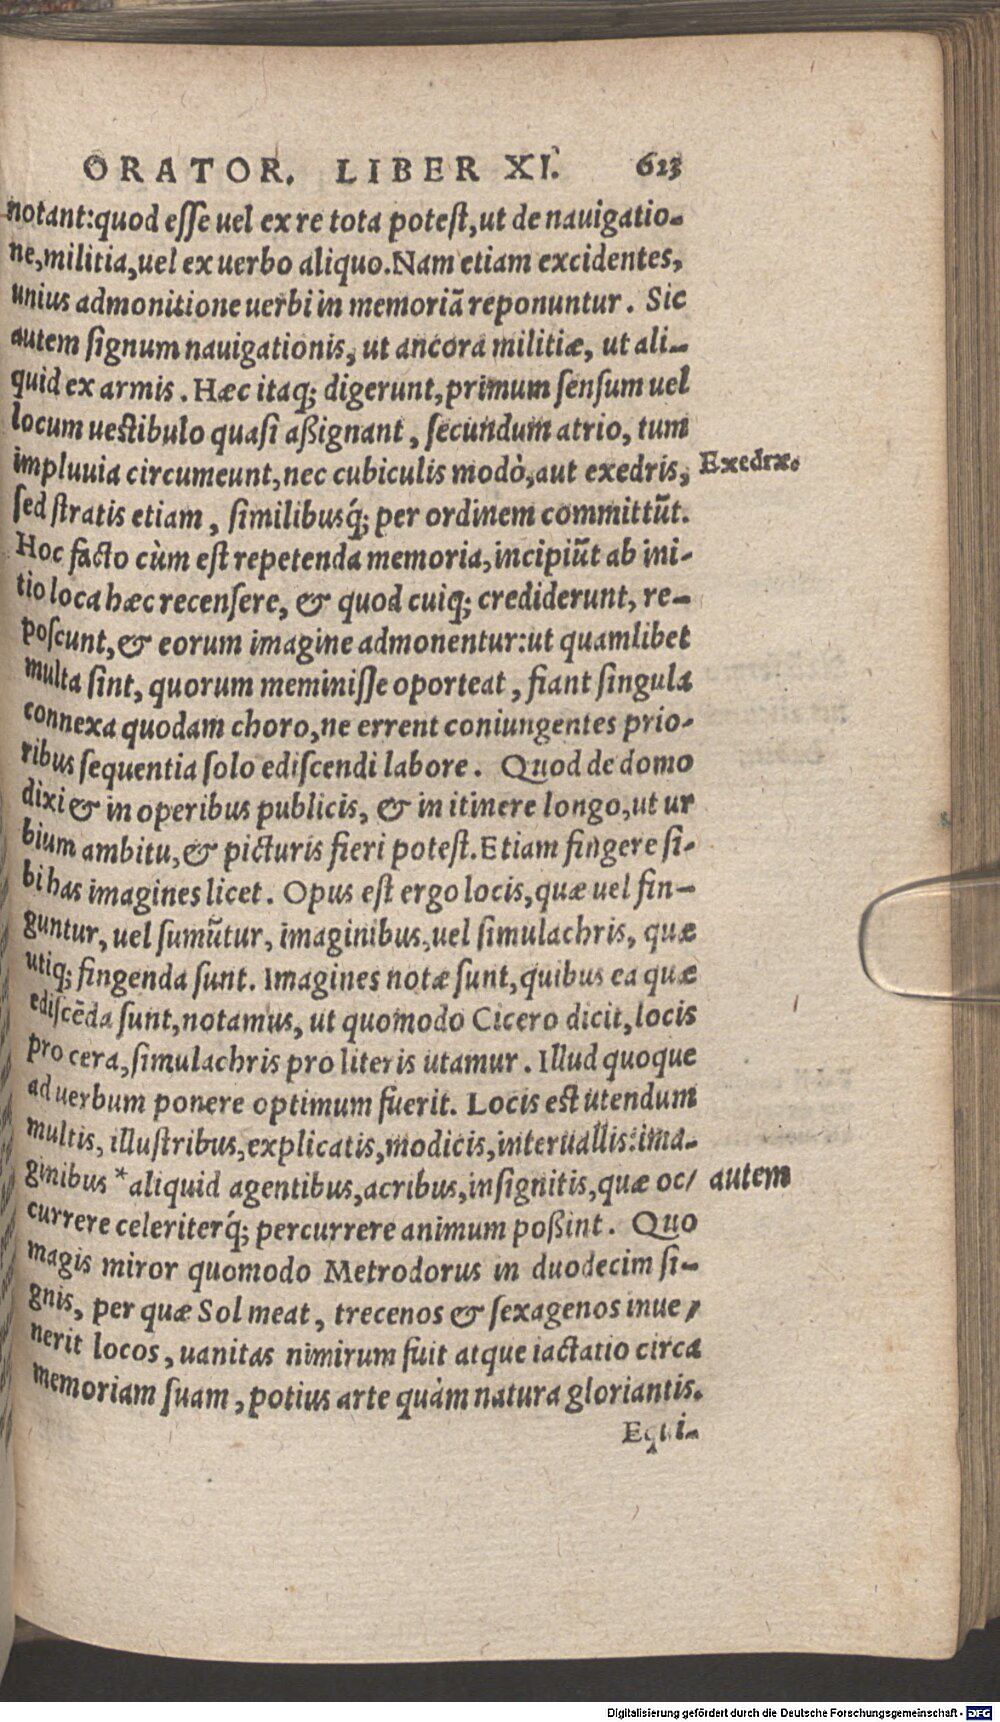 ORATOR. LIBER XI. 613
notant:quod esse uel ex re tota potest,ut de nauigatio-
ne,militia,uel ex uerbo aliquo.Nam etiam excidentes,
unius admonitione uerbi in memoriã reponuntur. Sic
autem signum nauigationis, ut ancora militiæ, ut ali-
quid ex armis. Hæc itaq; digerunt,primum sensum uel
locum uestibulo quasi aßignant, secundum atrio, tum
impluuia circumeunt,nec cubiculis modò,aut exedris, Exedræ.
sed stratis etiam, similibusq́; per ordinem committũt.
Hoc facto cùm est repetenda memoria,incipiũt ab ini-
tio loca hæc recensere, & quod cuiq; crediderunt, re-
poscunt,& eorum imagine admonentur:ut quamlibet
multa sint, quorum meminisse oporteat, fiant singula
connexa quodam choro,ne errent coniungentes prio-
ribus sequentia solo ediscendi labore. Quod de domo
dixi & in operibus publicis, & in itinere longo,ut ur
bium ambitu,& picturis fieri potest.Etiam fingere si-
bi has imagines licet. Opus est ergo locis,quæ uel fin-
guntur, uel sumũtur, imaginibus,uel simulachris, quæ
utiq; fingenda sunt. Imagines notæ sunt,quibus ea quæ
ediscẽda sunt,notamus, ut quomodo Cicero dicit,locis
pro cera,simulachris pro literis utamur. Illud quoque
ad uerbum ponere optimum fuerit. Locis est utendum
multis, illustribus,explicatis,modicis,interuallis:ima-
ginibus *aliquid agentibus,acribus,insignitis,quæ oc/ autem
currere celeriterq́; percurrere animum poßint. Quo
magis miror quomodo Metrodorus in duodecim si-
gnis, per quæ Sol meat, trecenos & sexagenos inue/
nerit locos, uanitas nimirum fuit atque iactatio circa
memoriam suam, potius arte quàm natura gloriantis.
Equi-
Digitalisierung gefördert durch die Deutsche Forschungsgemeinschaft - DFG